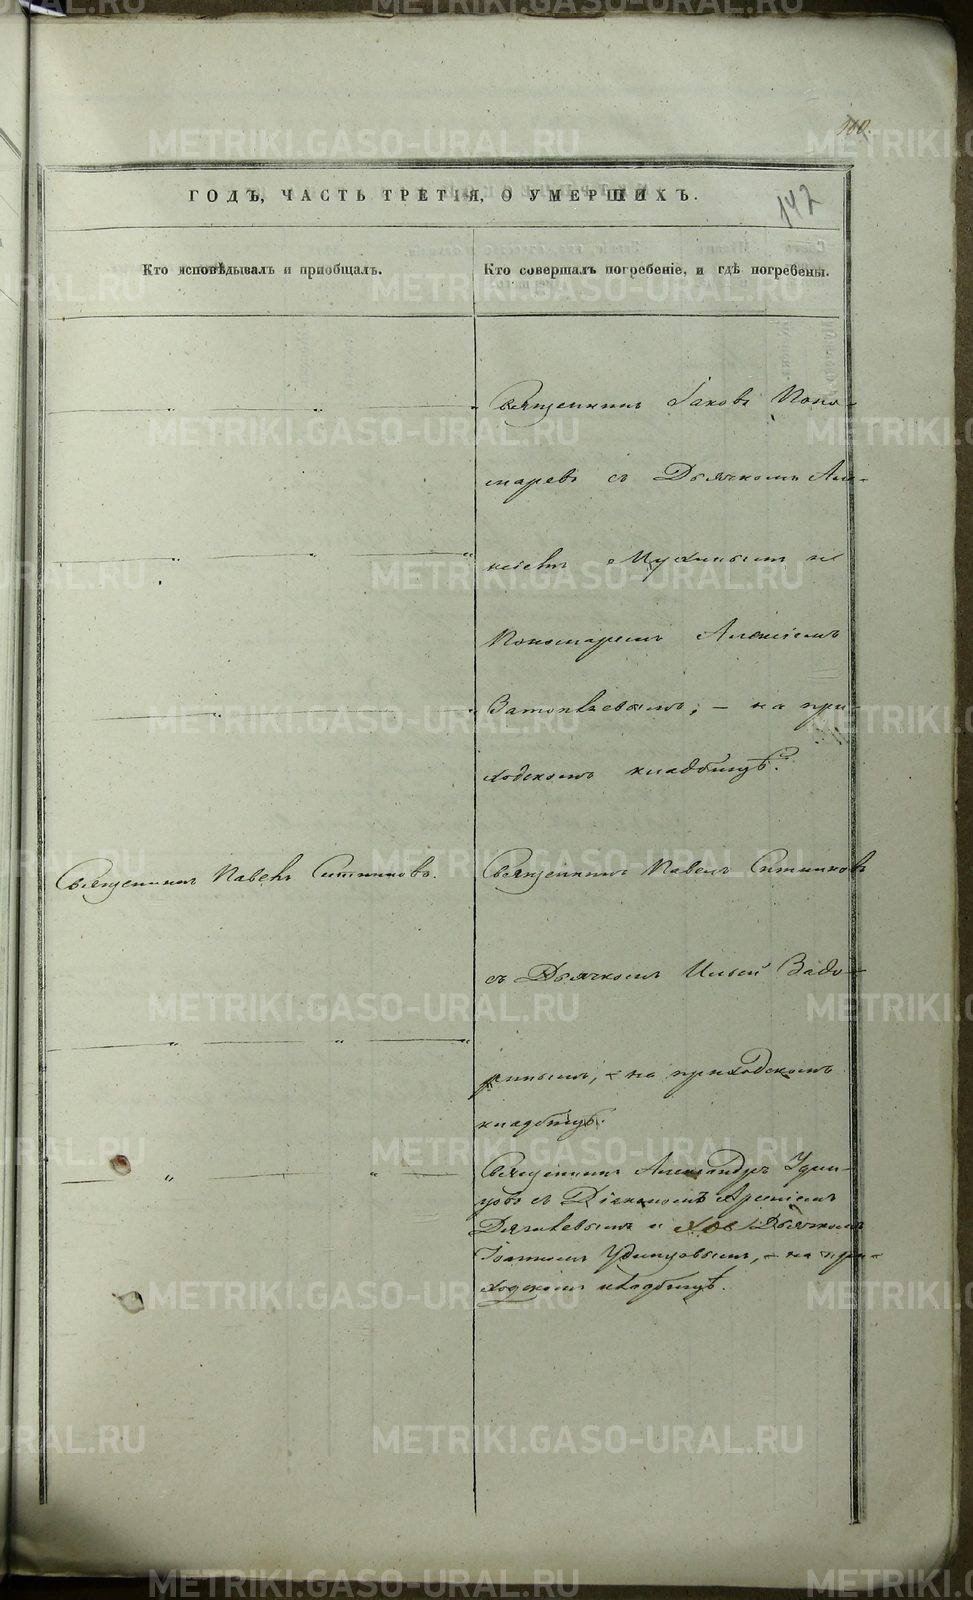 160.
142
ГОДЪ, ЧАСТЬ ТРЕТІЯ, О УМЕРШИХЪ.
Кто исповѣдывалъ и пріобщалъ.
Кто совершалъ погребеніе, и гдѣ погребены.
Священникъ Іаковъ Поно-
маревъ съ Дьячкомъ Але-
ксіемъ Мухинымъ и
Пономаремъ Алексіемъ
; – на при-
ходскомъ кладбищѣ.
Священникъ Павелъ Ситниковъ.
Священникъ Павелъ Ситниковъ
съ Дьячкомъ Ильей Задо-
ринымъ, – на приходскомъ
кладбищѣ.
Священникъ Александръ Удин-
цовъ съ Діакономъ Арсеніемъ
и Дьячкомъ
Іоанномъ Удинцовымъ, – на при-
ходскомъ кладбищѣ.
METRIKI.GASO-URAL.RU